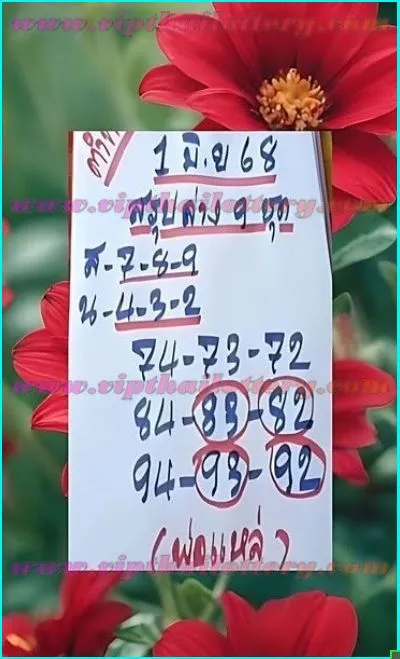 www.vipthailottery.com
1 มิ.ย 68
www.vipthailottery.com
สรุปล่าง 9 ชุด
ส-7-8-9
น-4-3-2
74-73-72
www.vipthailottery.com
84-83-82
94-93-92
(พ่อแหล่)
www.vipthailottery.com